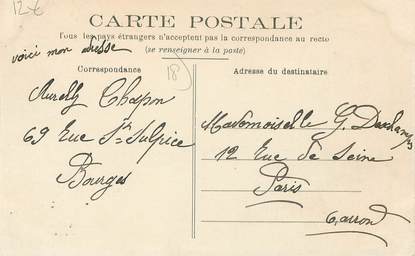 12€
CARTE POSTALE
Tous les pays étrangers n'acceptent pas la correspondance au recto
(se renseigner à la poste)
voici mon adresse
18
Correspondance
Adresse du destinataire
Aurelly Chapon
69 Rue St Sulpice
Bourges
Mademoiselle G. Deschamps
12 Rue de Seine
Paris